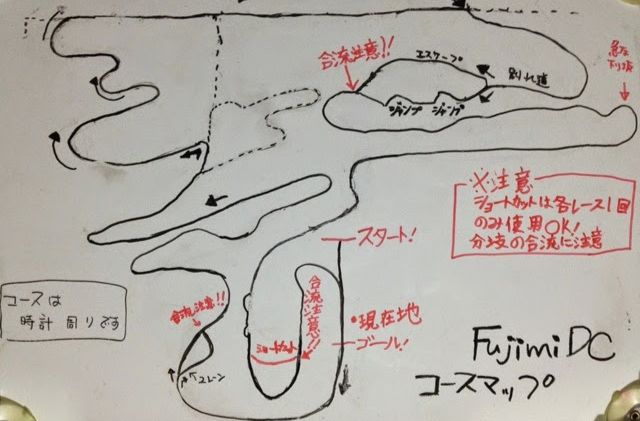 合流注意!!
エスケープ
別れ道
ジャンプ ジャンプ
急な
下り坂
※注意
ショートカットは各レース1回
のみ使用OK!
分岐の合流に注意
スタート!
コースは
時計周りです
合流注意!!
合流注意!!
ショートカット
•現在地
ゴール!
2レーン
Fujimi DC
コースマップ